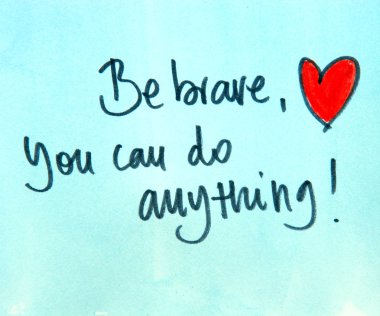 Be brave,
you can do
anything!